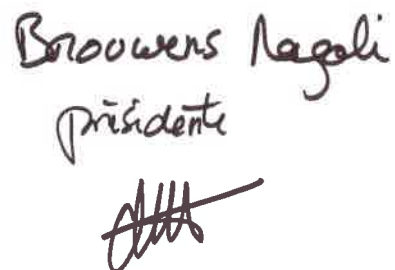 Brouwers Magali
présidente